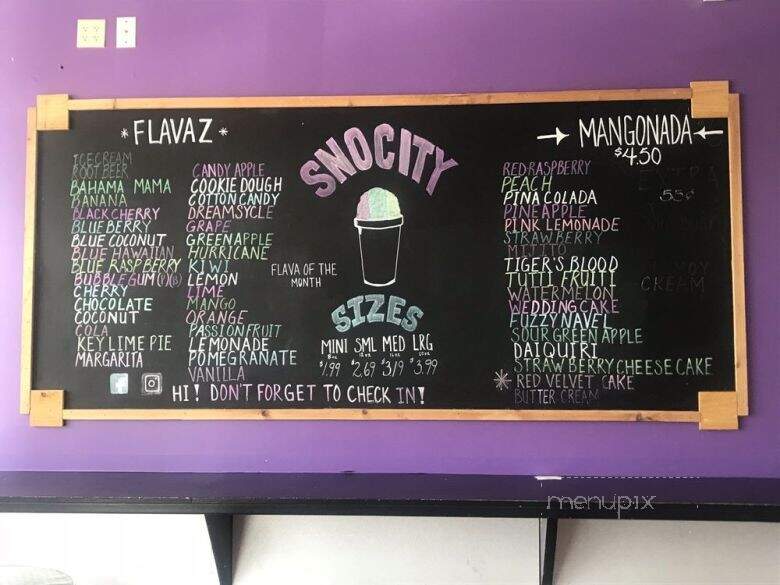 *FLAVAZ*
ICECREAM
ROOT BEER
BAHAMA MAMA
BANANA
BLACK CHERRY
BLUEBERRY
BLUE COCONUT
BLUE HAWAIIAN
BLUE RASPBERRY
BUBBLEGUM(P)(B)
CHERRY
CHOCOLATE
COCONUT
COLA
KEY LIME PIE
MARGARITA
CANDY APPLE
COOKIE DOUGH
COTTON CANDY
DREAMSYCLE
GRAPE
GREEN APPLE
HURRICANE
KIWI
LEMON
LIME
MANGO
ORANGE
PASSION FRUIT
LEMONADE
POMEGRANATE
VANILLA
SNOCITY
FLAVA OF THE
MONTH
SIZES
MINI SML MED LRG
8oz 12oz 16oz 20oz
$1.99 $2.69 $3.19 $3.99
HI! DON'T FORGET TO CHECK IN!
→ MANGONADA ←
$4.50
RED RASPBERRY
PEACH
PINA COLADA
PINEAPPLE
PINK LEMONADE
STRAWBERRY
MOJITO
TIGER'S BLOOD
TUTTI FRUITI
WATERMELON
WEDDING CAKE
FUZZY NAVEL
SOUR GREEN APPLE
DAIQUIRI
STRAWBERRY CHEESE CAKE
* RED VELVET CAKE
BUTTER CREAM
EXTRA
55¢
CREAM
menupix